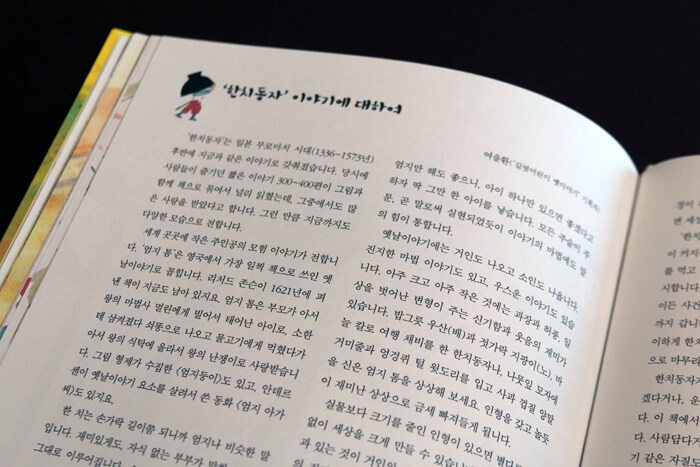 '한치동자' 이야기에 대하여
'한치동자'는 일본 무로마치 시대(1336~1573년)
후반에 지금과 같은 이야기로 갖춰졌습니다. 당시에
사람들이 즐기던 짧은 이야기 300~400편이 그림과
함께 책으로 묶여서 널리 읽혔는데, 그중에서도 많
은 사랑을 받았다고 합니다. 그런 만큼 지금까지도
다양한 모습으로 전합니다.
세계 곳곳에 작은 주인공의 모험 이야기가 전합니
다. '엄지 톰'은 영국에서 가장 일찍 책으로 쓰인 옛
날이야기로 꼽힙니다. 리처드 존슨이 1621년에 펴
낸 책이 지금도 남아 있지요. 엄지 톰은 부모가 아서
왕의 마법사 멀린에게 빌어서 태어난 아이로, 소한
테 삼켜졌다 쇠똥으로 나오고 물고기에게 먹혔다가
아서 왕의 식탁에 올라서 왕의 난쟁이로 사랑받습니
다. 그림 형제가 수집한 <엄지둥이>도 있고, 안데르
센이 옛날이야기 요소를 살려서 쓴 동화 <엄지 아가
씨>도 있지요.
한 치는 손가락 길이쯤 되니까 엄지나 비슷한 말
입니다. 재미있게도, 자식 없는 부부가 말한
그대로 이루어집니다.
여을환('길벗어린이 옛이야기' 기획자)
엄지만 해도 좋으니, 아이 하나만 있으면 좋겠다고
하자 딱 그만 한 아이를 낳습니다. 모든 주술이 주
문, 곧 말로써 실현되었듯이 이야기의 마법에도 말
의 힘이 통합니다.
옛날이야기에는 거인도 나오고 소인도 나옵니다.
진지한 마법 이야기도 있고, 우스운 이야기도 있습
니다. 아주 크고 아주 작은 것에는 과장과 허풍, 일
상을 벗어난 변형이 주는 신기함과 웃음의 재미가
있습니다. 밥그릇 우산(배)과 젓가락 지팡이(노), 바
늘 칼로 여행 채비를 한 한치동자나, 나뭇잎 모자에
거미줄과 엉겅퀴 털 윗도리를 입고 사과 껍질 양말
을 신은 엄지 톰을 상상해 보세요. 인형을 갖고 놀듯
이 재미난 상상으로 금세 빠져들게 됩니다.
실물보다 크기를 줄인 인형이 있으면 별다
없이 세상을 크게 만들 수 있습니다
과 있는 것이 거인의
경이
면 세
'한치
이 커지
를 먹고
시합니다
이든 사건
까지 갑니
이하게 한
으로 마무리
한치동자
겠다거나, 운
다. 이 책에서
다. 답답하다
기 같은 자질